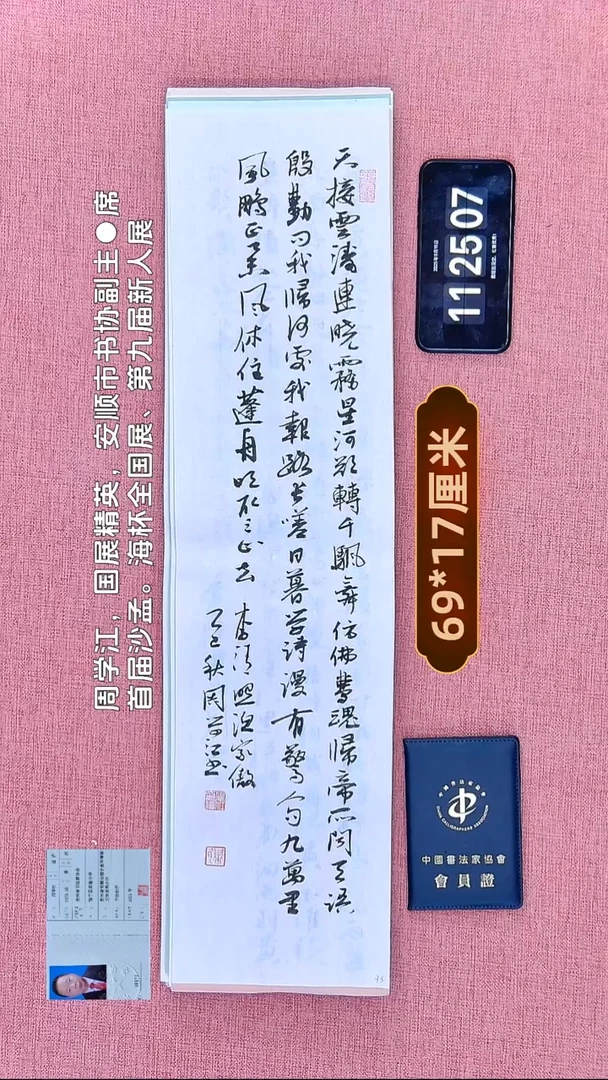 天接雲濤連曉霧星河欲轉千颿舞彷彿夢魂歸帝所聞天語
殷勤問我歸何處我報路長嗟日暮學詩漫有驚人句九萬里
風鵬正舉風休住蓬舟吹取三山去
李清照漁家傲
乙巳秋周學江書
周学江,国展精英,安顺市书协副主●席
首届沙孟。海杯全国展、第九届新人展
11 25 07
69*17厘米
中國書法家協會
CHINA CALLIGRAPHERS ASSOCIATION
中國書法家協會
會員證